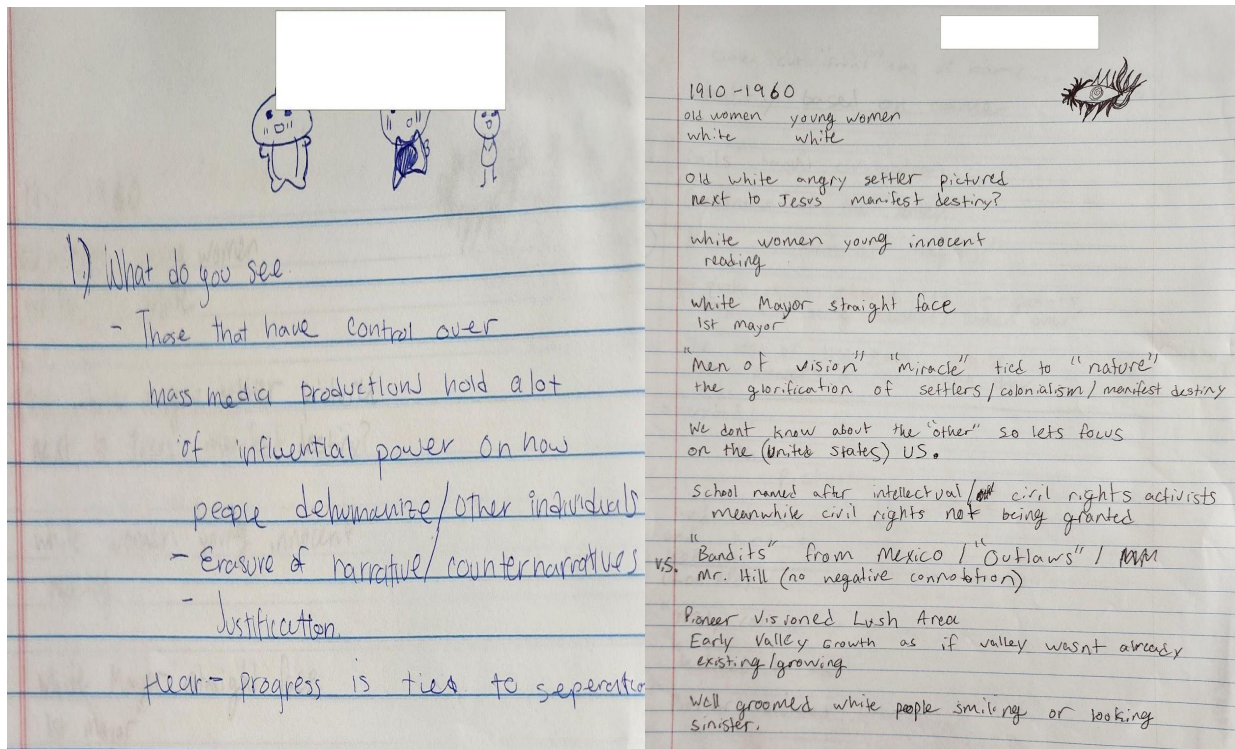 1.) What do you see.
- Those that have control over
mass media productions hold alot
of influential power on how
people dehumanize/other individuals
- Erasure of narrative/counternarratives
- Justification.
Hear - Progress is tied to seperatio
1910-1960
old women young women
white white
Old white angry settler pictured
next to Jesus manifest destiny?
white women young innocent
reading
white Mayor straight face
1st mayor
"Men of vision" "miracle" tied to "nature"
the glorification of settlers/colonialism/manifest destiny
We dont know about the "other" so lets focus
on the (United States) US.
School named after intellectual/ civil rights activists
meanwhile civil rights not being granted
"Bandits" from Mexico / "Outlaws" /
v.s. Mr. Hill (no negative connotation)
Pioneer Visioned Lush Area
Early Valley Growth as if valley wasnt already
existing/growing
Well groomed white people smiling or looking
sinister.